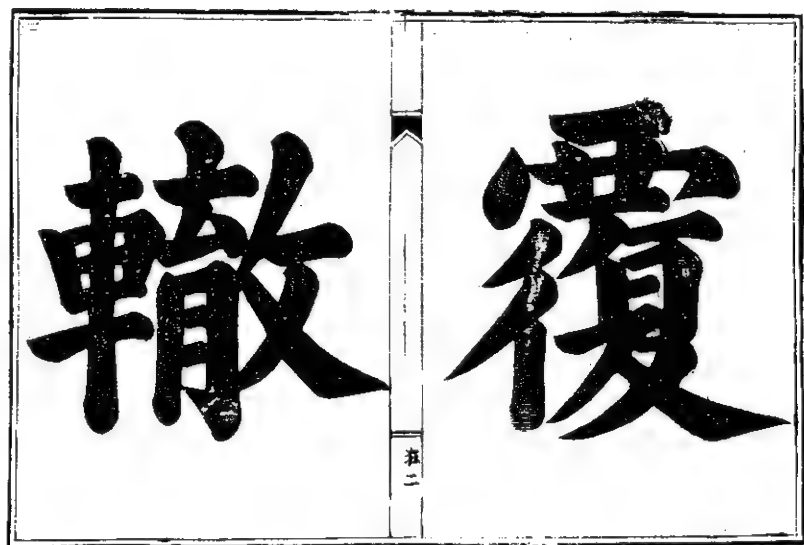 覆
轍
二